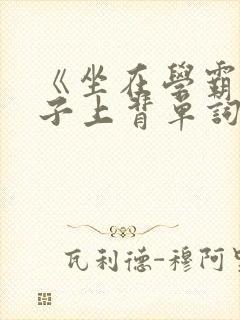 《坐在學霸
子上背單詞
瓦利德-穆阿